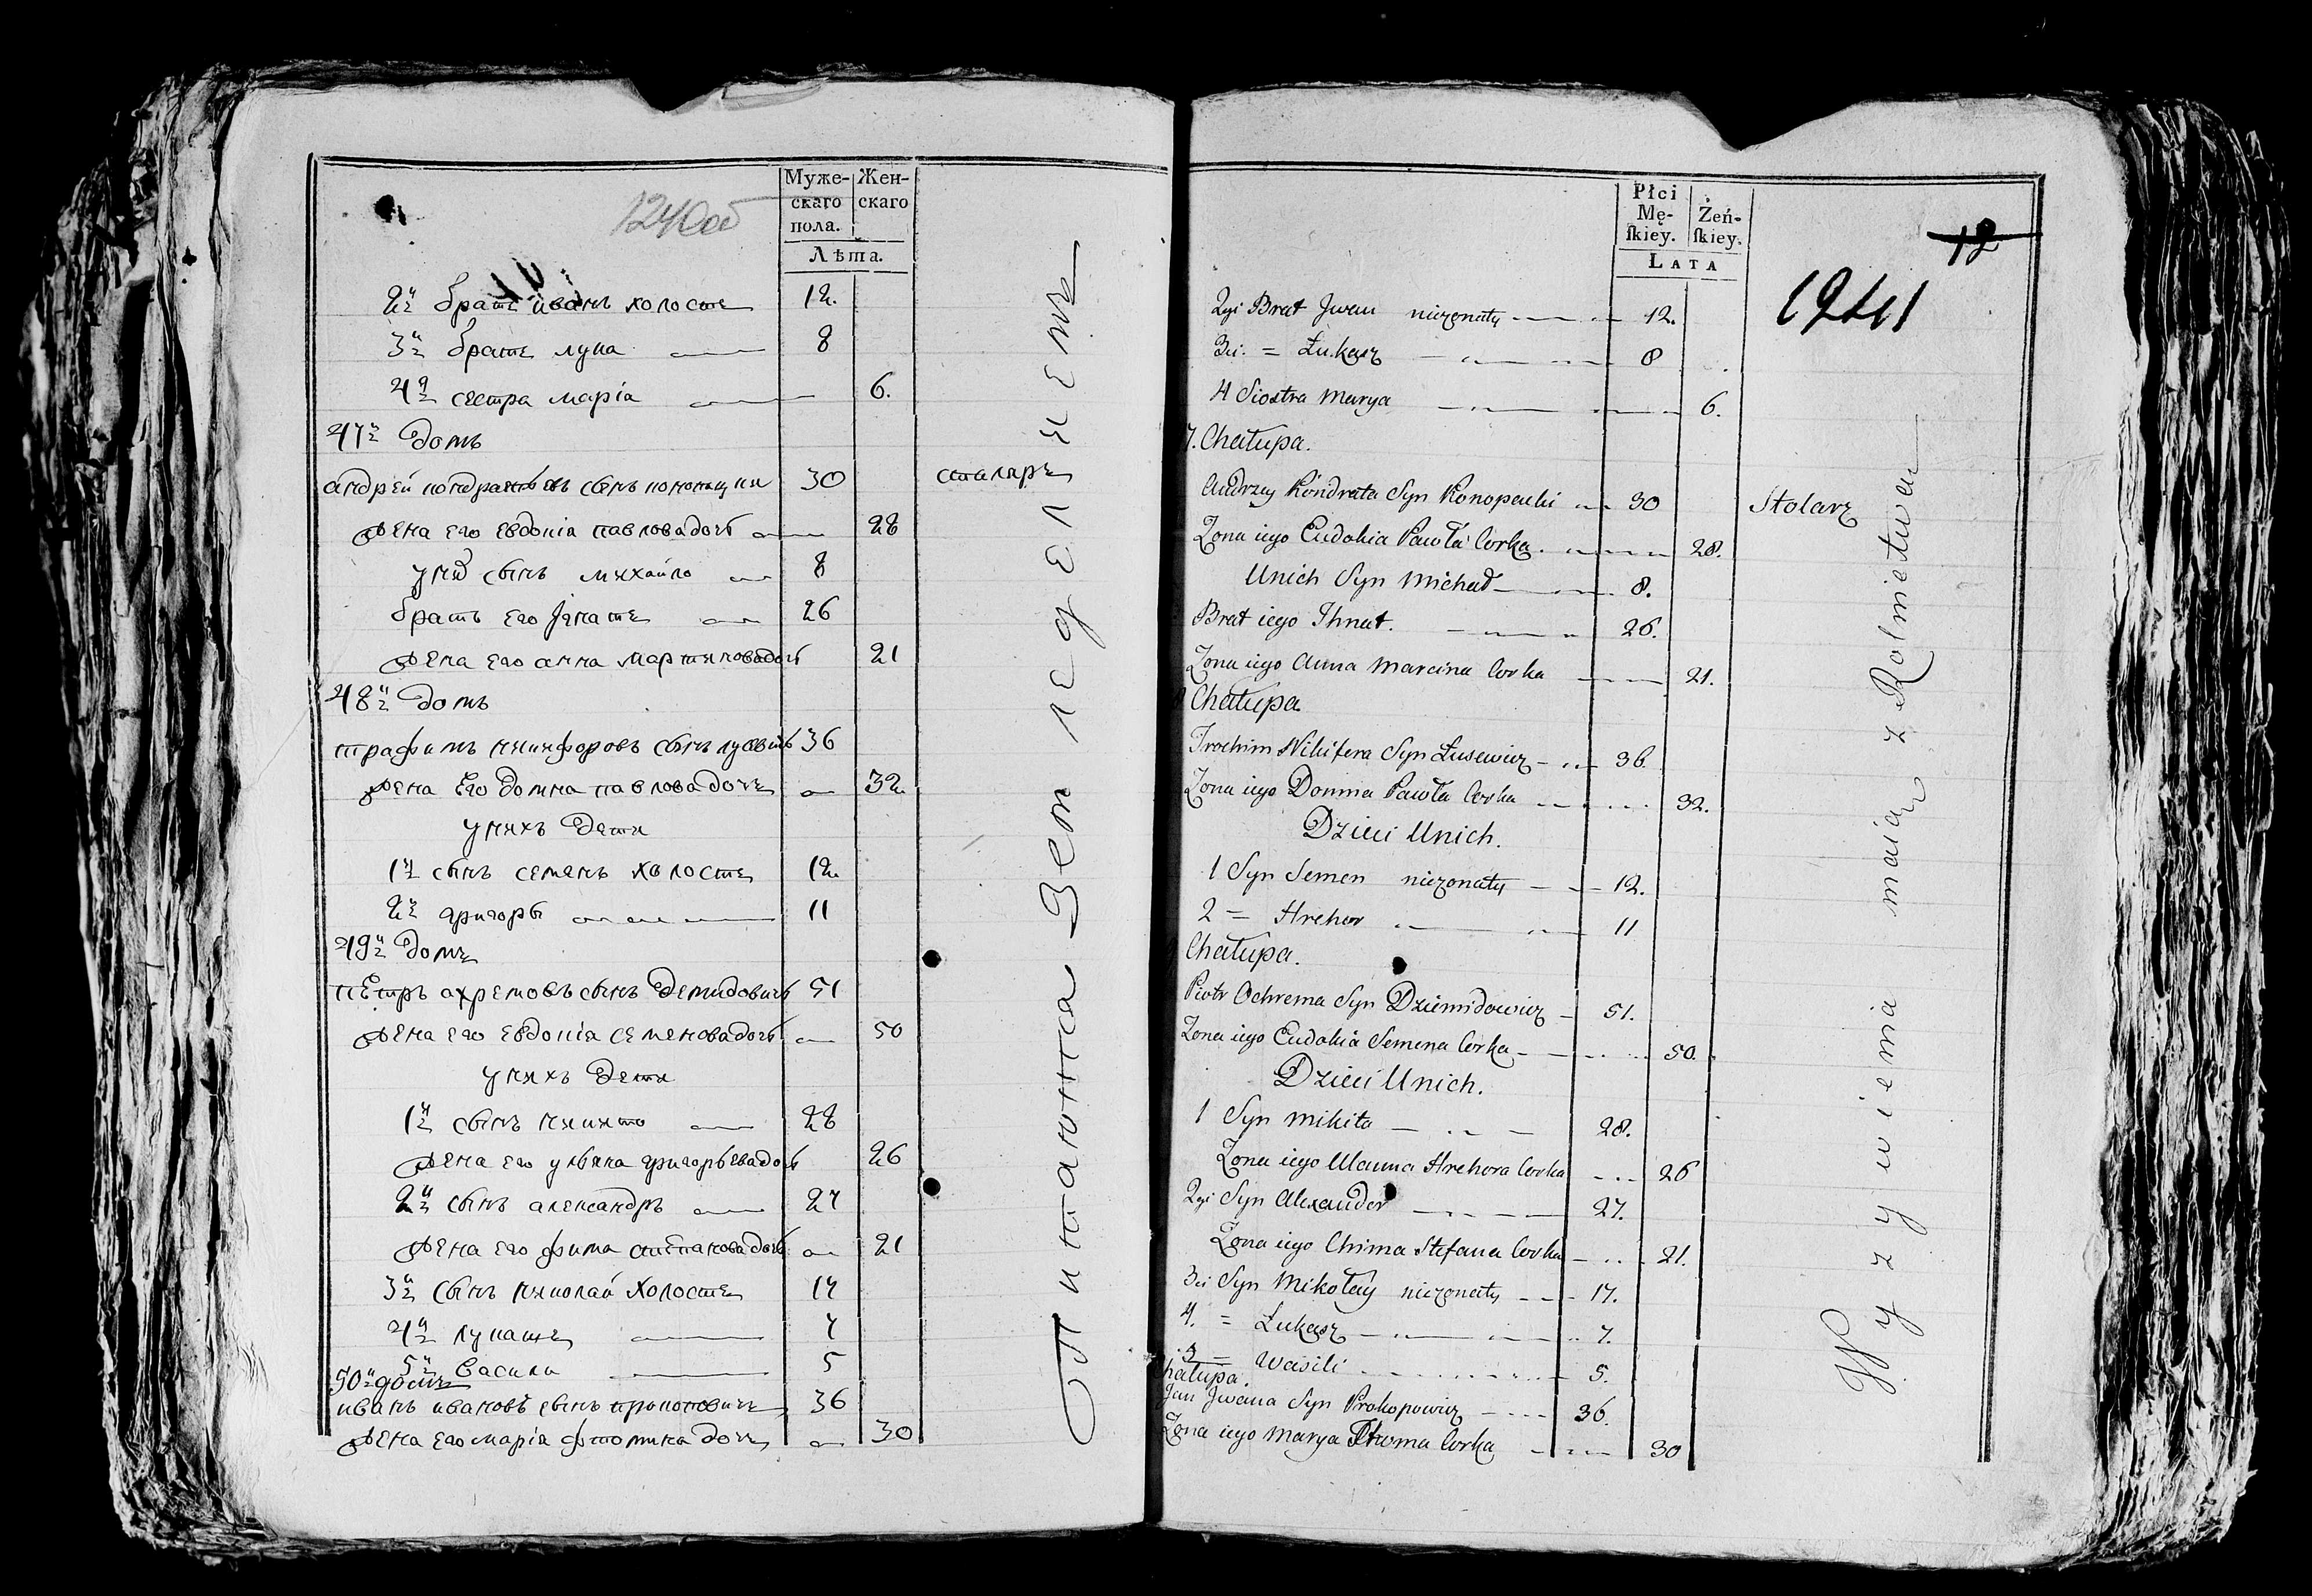 124об
Муже-
скаго
пола.
Жен-
скаго
Лѣта.
2й братъ иванъ холостъ 12.
3й братъ лука 8
4я сестра марiа 6.
47й домъ
андрей кондратьевъ сынъ 30 столяръ
жена его евдокiа павлова дочь 28
у них сынъ михайло 8
братъ его игнатъ 26
жена его анна мартинова дочь 21
48й домъ
трафимъ никифоровъ сынъ лусевичь 36
жена его домна павлова дочь 32.
у нихъ дети
1й сынъ семенъ холостъ 12.
2й григорь 11
49й домъ
петръ ахремовъ сынъ демидовичь 51
жена его евдокiа семенова дочь 50
у нихъ дети
1й сынъ никита 28
жена его ульяна григорьева дочь 26
2й сынъ александръ 27
жена его фима степанова дочь 21
3й сынъ николай холостъ 17
4й лукашъ 7
5й васили 5
50й домъ
иванъ ивановъ сынъ прокоповичъ 36
жена его марiа фтомина дочь 30
Питаются Земледелiемъ
Płci
Mę-
ſkiey.
Żeń-
ſkiey.
LATA
12
1241
2gi Brat Jwan nieżonaty 12.
3ci = Łukasz 8
4 Siostra Marya 6.
7. Chałupa.
Andrzey Kondrata Syn Konopacki 30 Stolarz
Zona iego Eudokia Pawła Corka. 28.
Unich Syn Michał 8.
Brat iego Ihnat. 26.
Zona iego Anna Marcina Corka 21.
Chałupa
Trochim Nikifera Syn Łusewicz 36.
Zona iego Domna Pawła Corka 32.
Dzieci Unich.
1 Syn Semen nieżonaty 12.
2 = Hrehor 11
Chałupa.
Piotr Ochrema Syn Dziemidowicz 51.
Zona iego Eudokia Semena Corka 50.
Dzieci Unich.
1 Syn Mikita 28.
Zona iego Ulanna Hrehora Corka 26
2gi Syn Alexander 27.
Zona iego Chima Stefana Corka 21.
3ci Syn Mikołay nieżonaty 17.
4. = Łukasz 7.
5 = Wasili 5.
Chałupa.
Jan Jwana Syn Prokopowicz 36.
Zona iego Marya Chtoma Corka 30
Wyzywienia maią z Rolnictwa